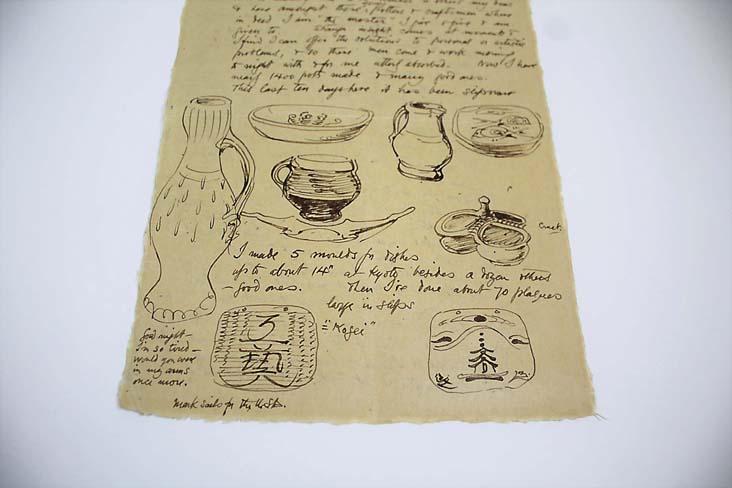 & here amongst these potters & craftsmen where
indeed I am "the master" I for a year & am
given to. strange insight comes at moments &
I find I can offer the solutions to personal or artistic
problems, & so these men come & work morning
& night with & for me utterly absorbed. Now I have
nearly 1400 pots made & many good ones.
This last ten days here it has been slipware
Cruet.
I made 5 moulds for dishes
up to about 14" at Kyoto, besides a dozen others
— good ones. Then I've done about 70 plaques
large in slips
= "Kogei"
工藝
Good night —
I'm so tired —
would you were
in my arms
once more.
Mark sails for the U.S.A.